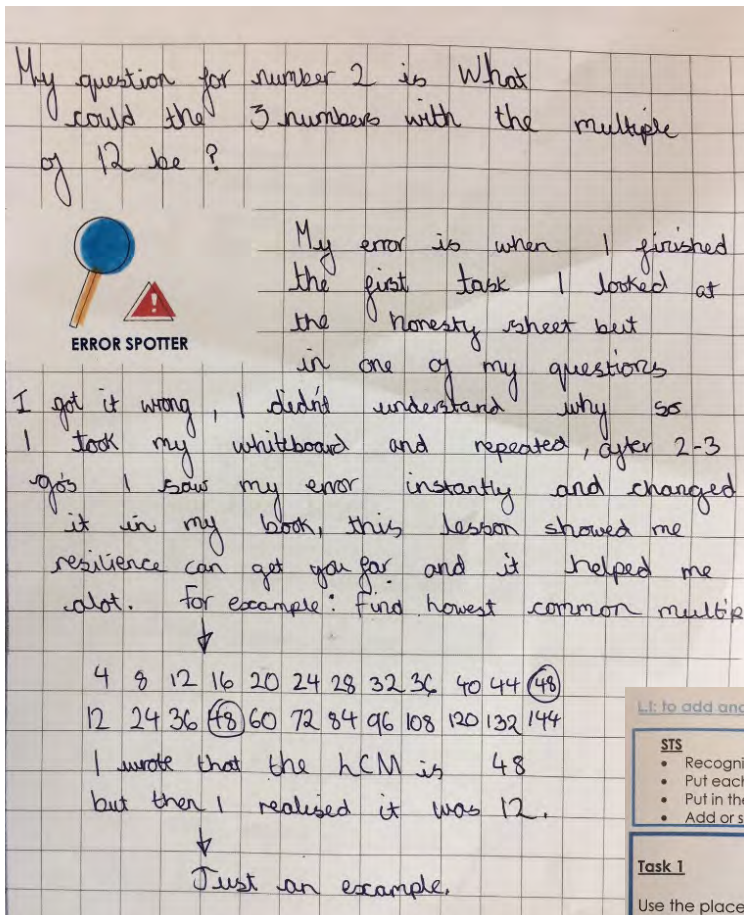 My question for number 2 is What
could the 3 numbers with the multiple
of 12 be?
My error is when I finished
the first task I looked at
the honesty sheet but
ERROR SPOTTER
in one of my questions
I got it wrong, I didn't understand why so
I took my whiteboard and repeated, after 2-3
go's I saw my error instantly and changed
it in my book, this lesson showed me
resilience can get you far and it helped me
alot. For example: find lowest common multip
4 8 12 16 20 24 28 32 36 40 44 48
12 24 36 48 60 72 84 96 108 120 132 144
I wrote that the LCM is 48
but then I realised it was 12.
Just an example.
L.I: to add and
STS
• Recogni
• Put each
• Put in the
• Add or s
Task 1
Use the place